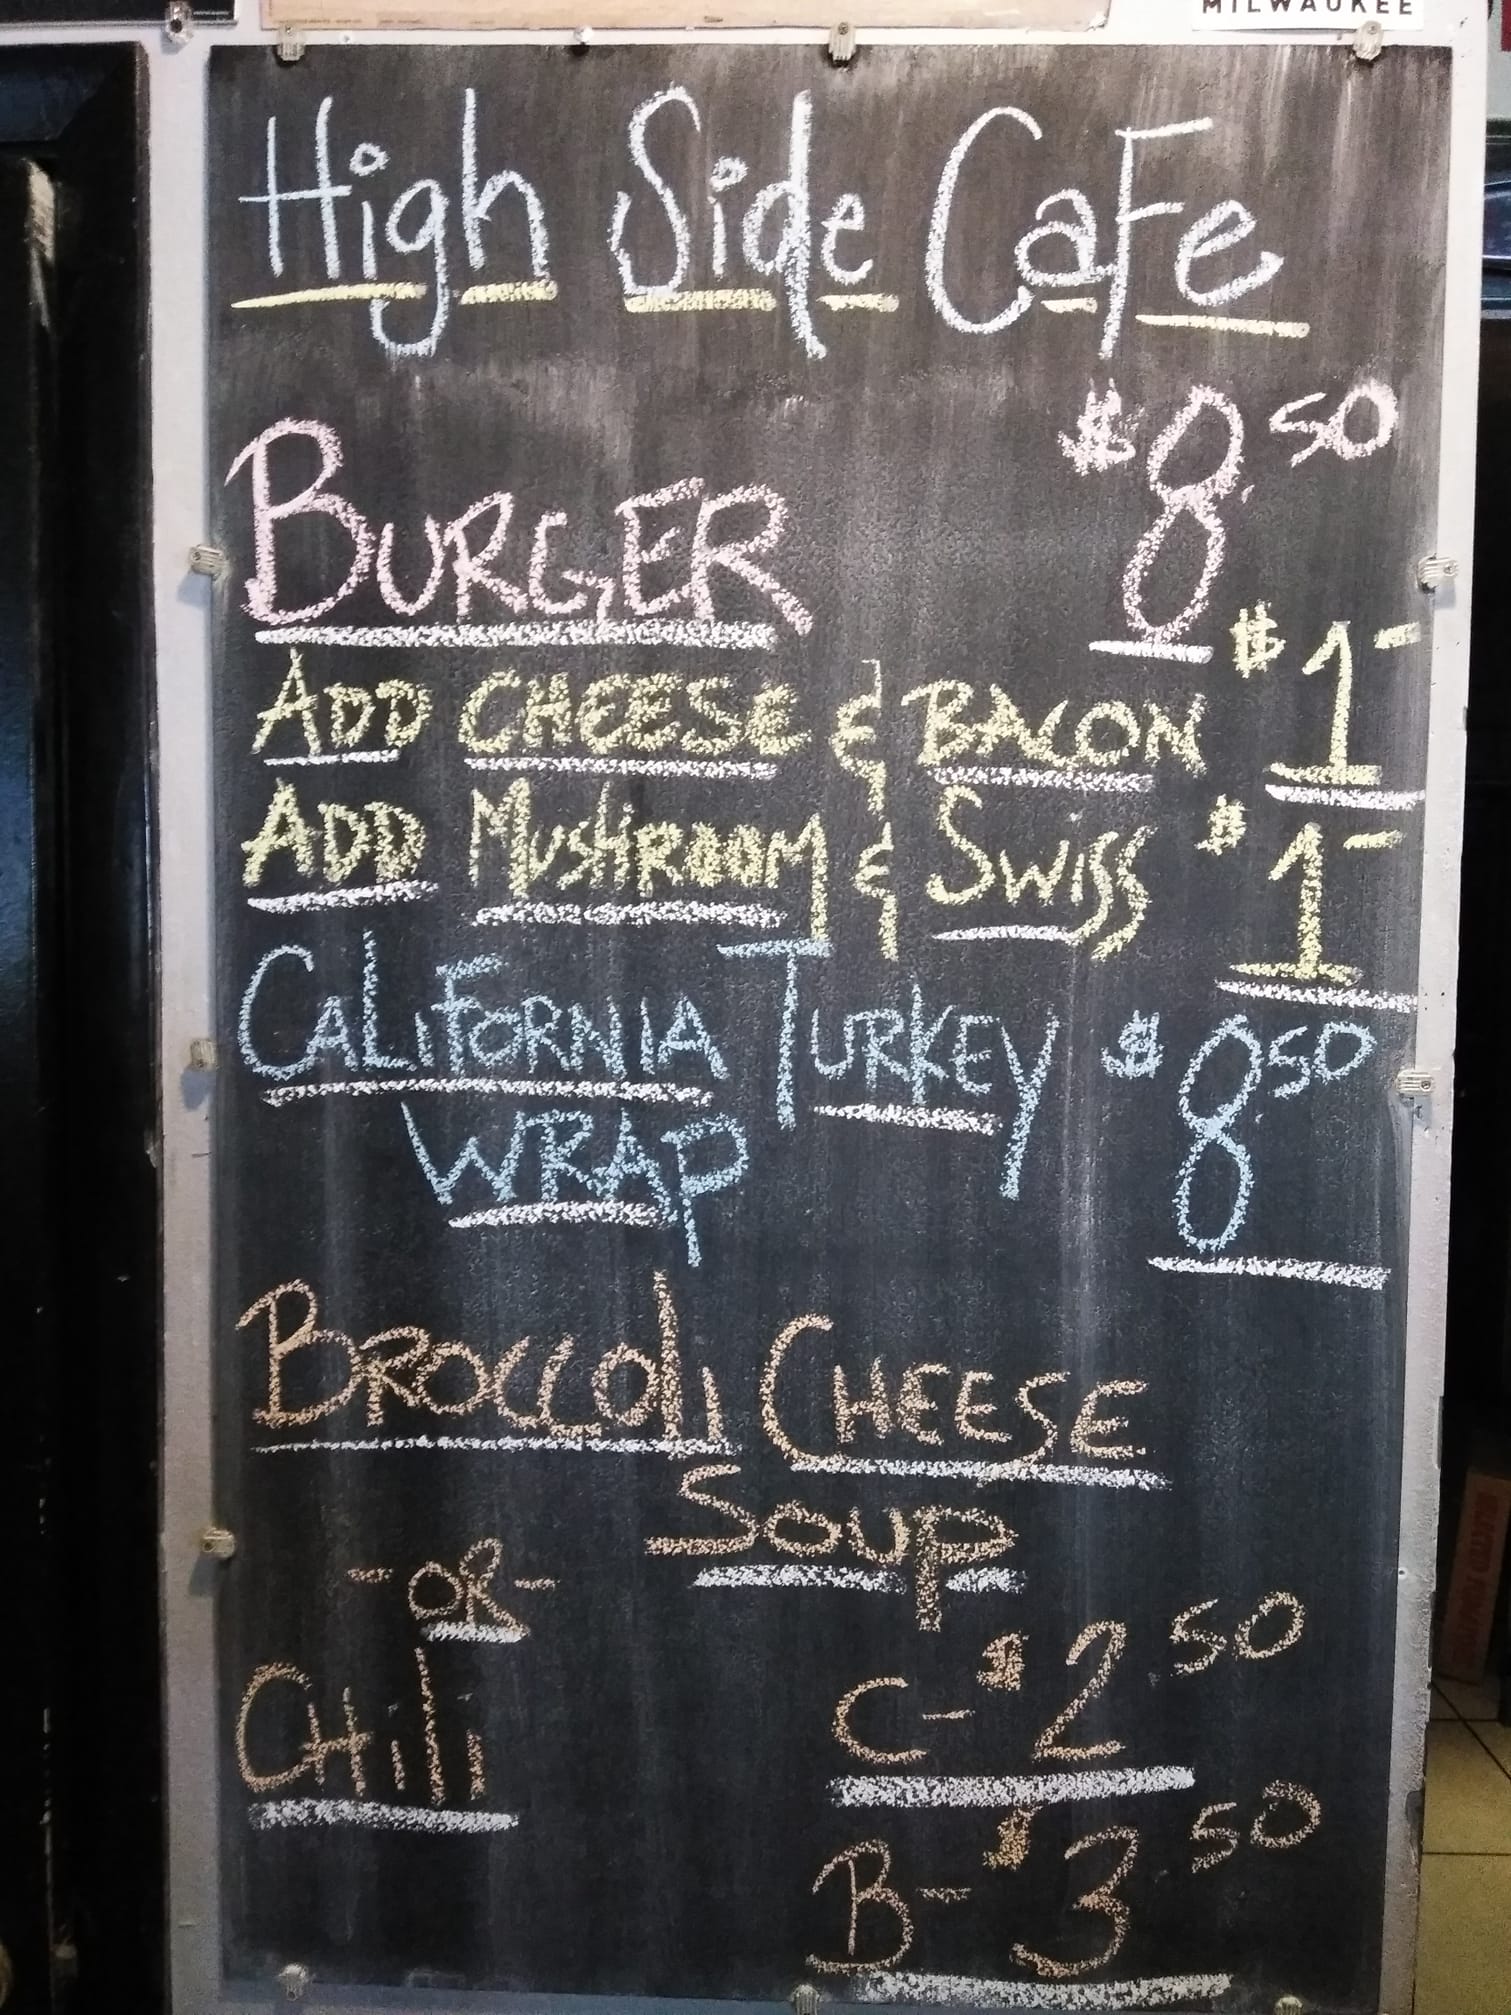 MILWAUKEE
High Side CaFe
BURGER $8.50
ADD CHEESE & BACON $1-
ADD MUSHROOM & SWISS $1-
CALIFORNIA TURKEY $8.50
WRAP
BROCCOLI CHEESE
SOUP
-OR-
CHILI C-$2.50
B-$3.50